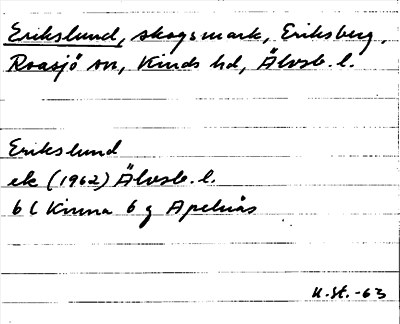 Erikslund, skogsmark, Eriksberg,
Roasjö sn, Kinds hd, Älvsb. l.
Erikslund
ek (1962) Älvsb. l.
6 C Kinna 6 g Apelnäs
U.St.-63